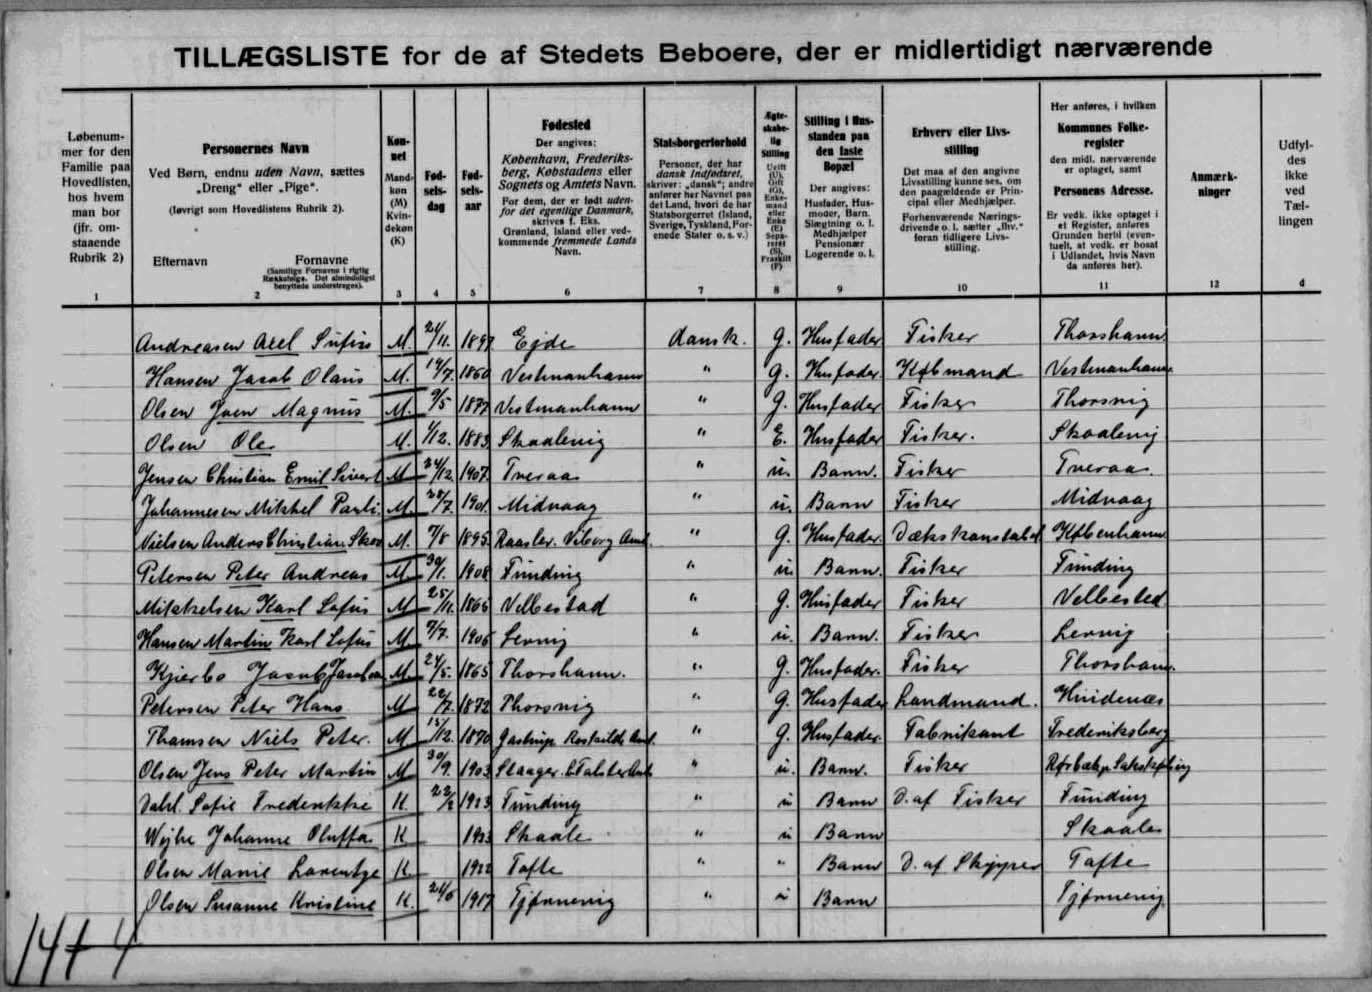 TILLÆGSLISTE for de af Stedets Beboere, der er midlertidigt nærværende
Løbenum-
mer for den
Familie paa
Hovedlisten,
hos hvem
man bor
(jfr. om-
staaende
Rubrik 2)
1
Personernes Navn
Ved Børn, endnu uden Navn, sættes
„Dreng“ eller „Pige“.
(Iøvrigt som Hovedlistens Rubrik 2).
Efternavn Fornavne
(Samtlige Fornavne i rigtig
Rækkefølge. Det almindeligst
benyttede understreges).
2
Køn-
net
Mand-
køn
(M)
Kvin-
dekøn
(K)
3
Fød-
sels-
dag
4
Fød-
sels-
aar
5
Fødested
Der angives:
København, Frederiks-
berg, Købstadens eller
Sognets og Amtets Navn.
For dem, der er født uden-
for det egentlige Danmark,
skrives f. Eks.
Grønland, Island eller ved-
kommende fremmede Lands
Navn.
6
Statsborgerforhold
Personer, der har
dansk Indfødsret,
skriver: „dansk“; andre
anfører her Navnet paa
det Land, hvori de har
Statsborgerret (Island,
Sverige, Tyskland, For-
enede Stater o. s. v.)
7
Ægte-
skabe-
lig
Stilling
Ugift
(U),
Gift
(G),
Enke-
mand
eller
Enke
(E)
Sepa-
reret
(S),
Fraskilt
(F)
8
Stilling i Hus-
standen paa
den faste
Bopæl
Der angives:
Husfader, Hus-
moder, Barn.
Slægtning o. l.
Medhjælper
Pensionær
Logerende o. l.
9
Erhverv eller Livs-
stilling
Det maa af den angivne
Livsstilling kunne ses, om
den paagældende er Prin-
cipal eller Medhjælper.
Forhenværende Nærings-
drivende o. l. sætter „fhv.“
foran tidligere Livs-
stilling.
10
Her anføres, i hvilken
Kommunes Folke-
register
den midl. nærværende
er optaget, samt
Personens Adresse.
Er vedk. ikke optaget i
et Register, anføres
Grunden hertil (even-
tuelt, at vedk. er bosat
i Udlandet, hvis Navn
da anføres her).
11
Anmærk-
ninger
12
Udfyl-
des
ikke
ved
Tæl-
lingen
d
Andreasen Axel Sufus M. 24/11. 1897 Ejde dansk. g. Husfader Fisker Thorshavn
Hansen Jacob Olaus M. 14/7. 1860 Vestmanhavn " g. Husfader. Købmand Vestmanhavn
Olsen Joen Magnus M. 9/5 1877 Vestmanhavn " g. Husfader Fisker Thorsvig
Olsen Ole. M. 1/12. 1883 Skaalevig " E. Husfader Fisker. Skaalevig
Jensen Christian Emil Sivert M 24/12. 1907. Tveraa " u. Barn. Fisker Tveraa.
Johannesen Mikkel Pauli. M. 28/7. 1901. Midvaag " u. Barn Fisker Midvaag
Nielsen Anders Christian Skov M. 7/8 1895. Raasler. Viborg Amt. " g. Husfader. Dækskonstabel København
Petersen Peter Andreas M 30/1. 1908 Funding " u. Barn. Fisker Funding
Mikkelsen Karl Sofus M 25/11. 1866 Velbestad " g. Husfader Fisker Velbested
Hansen Martin Karl Sofus M. 7/7. 1906 Lervig " u. Barn. Fisker Lervig
Kjærbo Jacob M 24/5. 1865 Thorshavn. " g. Husfader. Fisker Thorshavn.
Petersen Peter Hans M 22/7. 1872 Thorsvig " g. Husfader Landmand. Hvidenæs
Thomsen Niels Peter. M 13/12. 1870 Gastrup Roskilde Amt. " g. Husfader. Fabrikant Frederiksberg
Olsen Jens Peter Martin M 30/9. 1903 " u. Barn. Fisker Rørbæk p. Sakskøbing
Dahl. Sofie Frederikke K. 22/2 1923 Funding " u Barn D. af Fisker Funding
Wejhe Johanne Oluffa K 1923 Skaale " u Barn Skaale
Olsen Marie Laventze K. 1922 Tofte " " Barn D. af Skipper Tofte
Olsen Susanne Kristine K. 24/6 1917 Tjørnevig " u Barn Tjørnevig
14+4